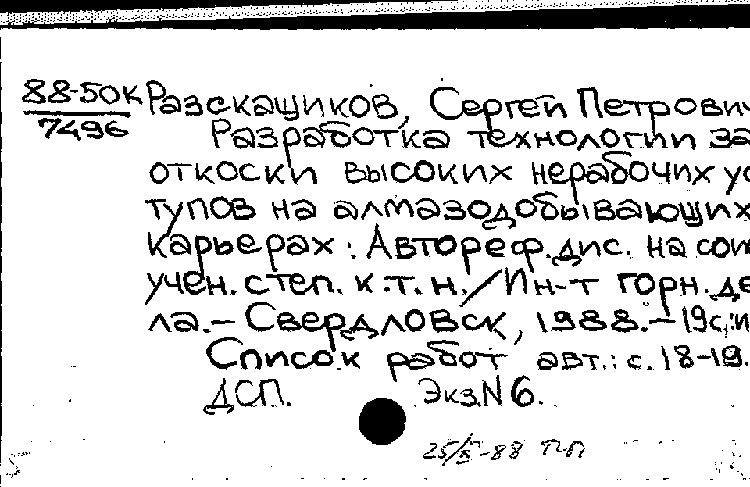 88-50К Разскащиков, Сергей Петрович
7496
Разработка технологии за
откоски высоких нерабочих ус
тупов на алмазодобывающих
карьерах: Автореф. дис. на сои
учен. степ. к.т.н./Ин-т горн. де
ла.- Свердловск, 1988.- 19с.:и
Список работ авт.: с.18-19.
ДСП. Экз.N6.
25/X-88